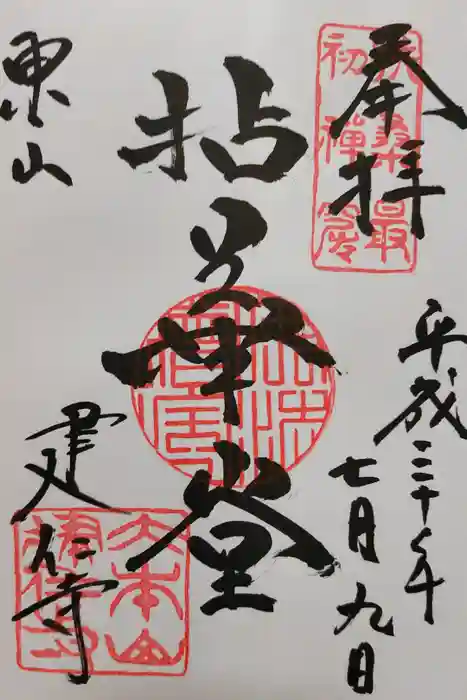 奉拝
扶桑最
初禅窟
平成三十年
七月九日
拈華堂
東山
建仁寺
大本山
建仁寺